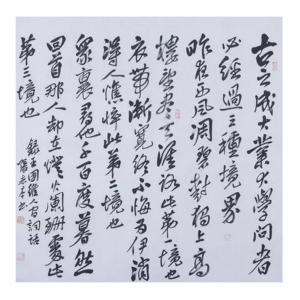 古之成大業大學问者
必經過三種境界
昨夜西風凋碧樹獨上高
樓望尽天涯路此第一境也
衣帶漸寬終不悔為伊消
得人憔悴此第二境也
衆裏尋他千百度暮然
回首那人却在燈火闌珊處此
第三境也
錄王國維人间詞話